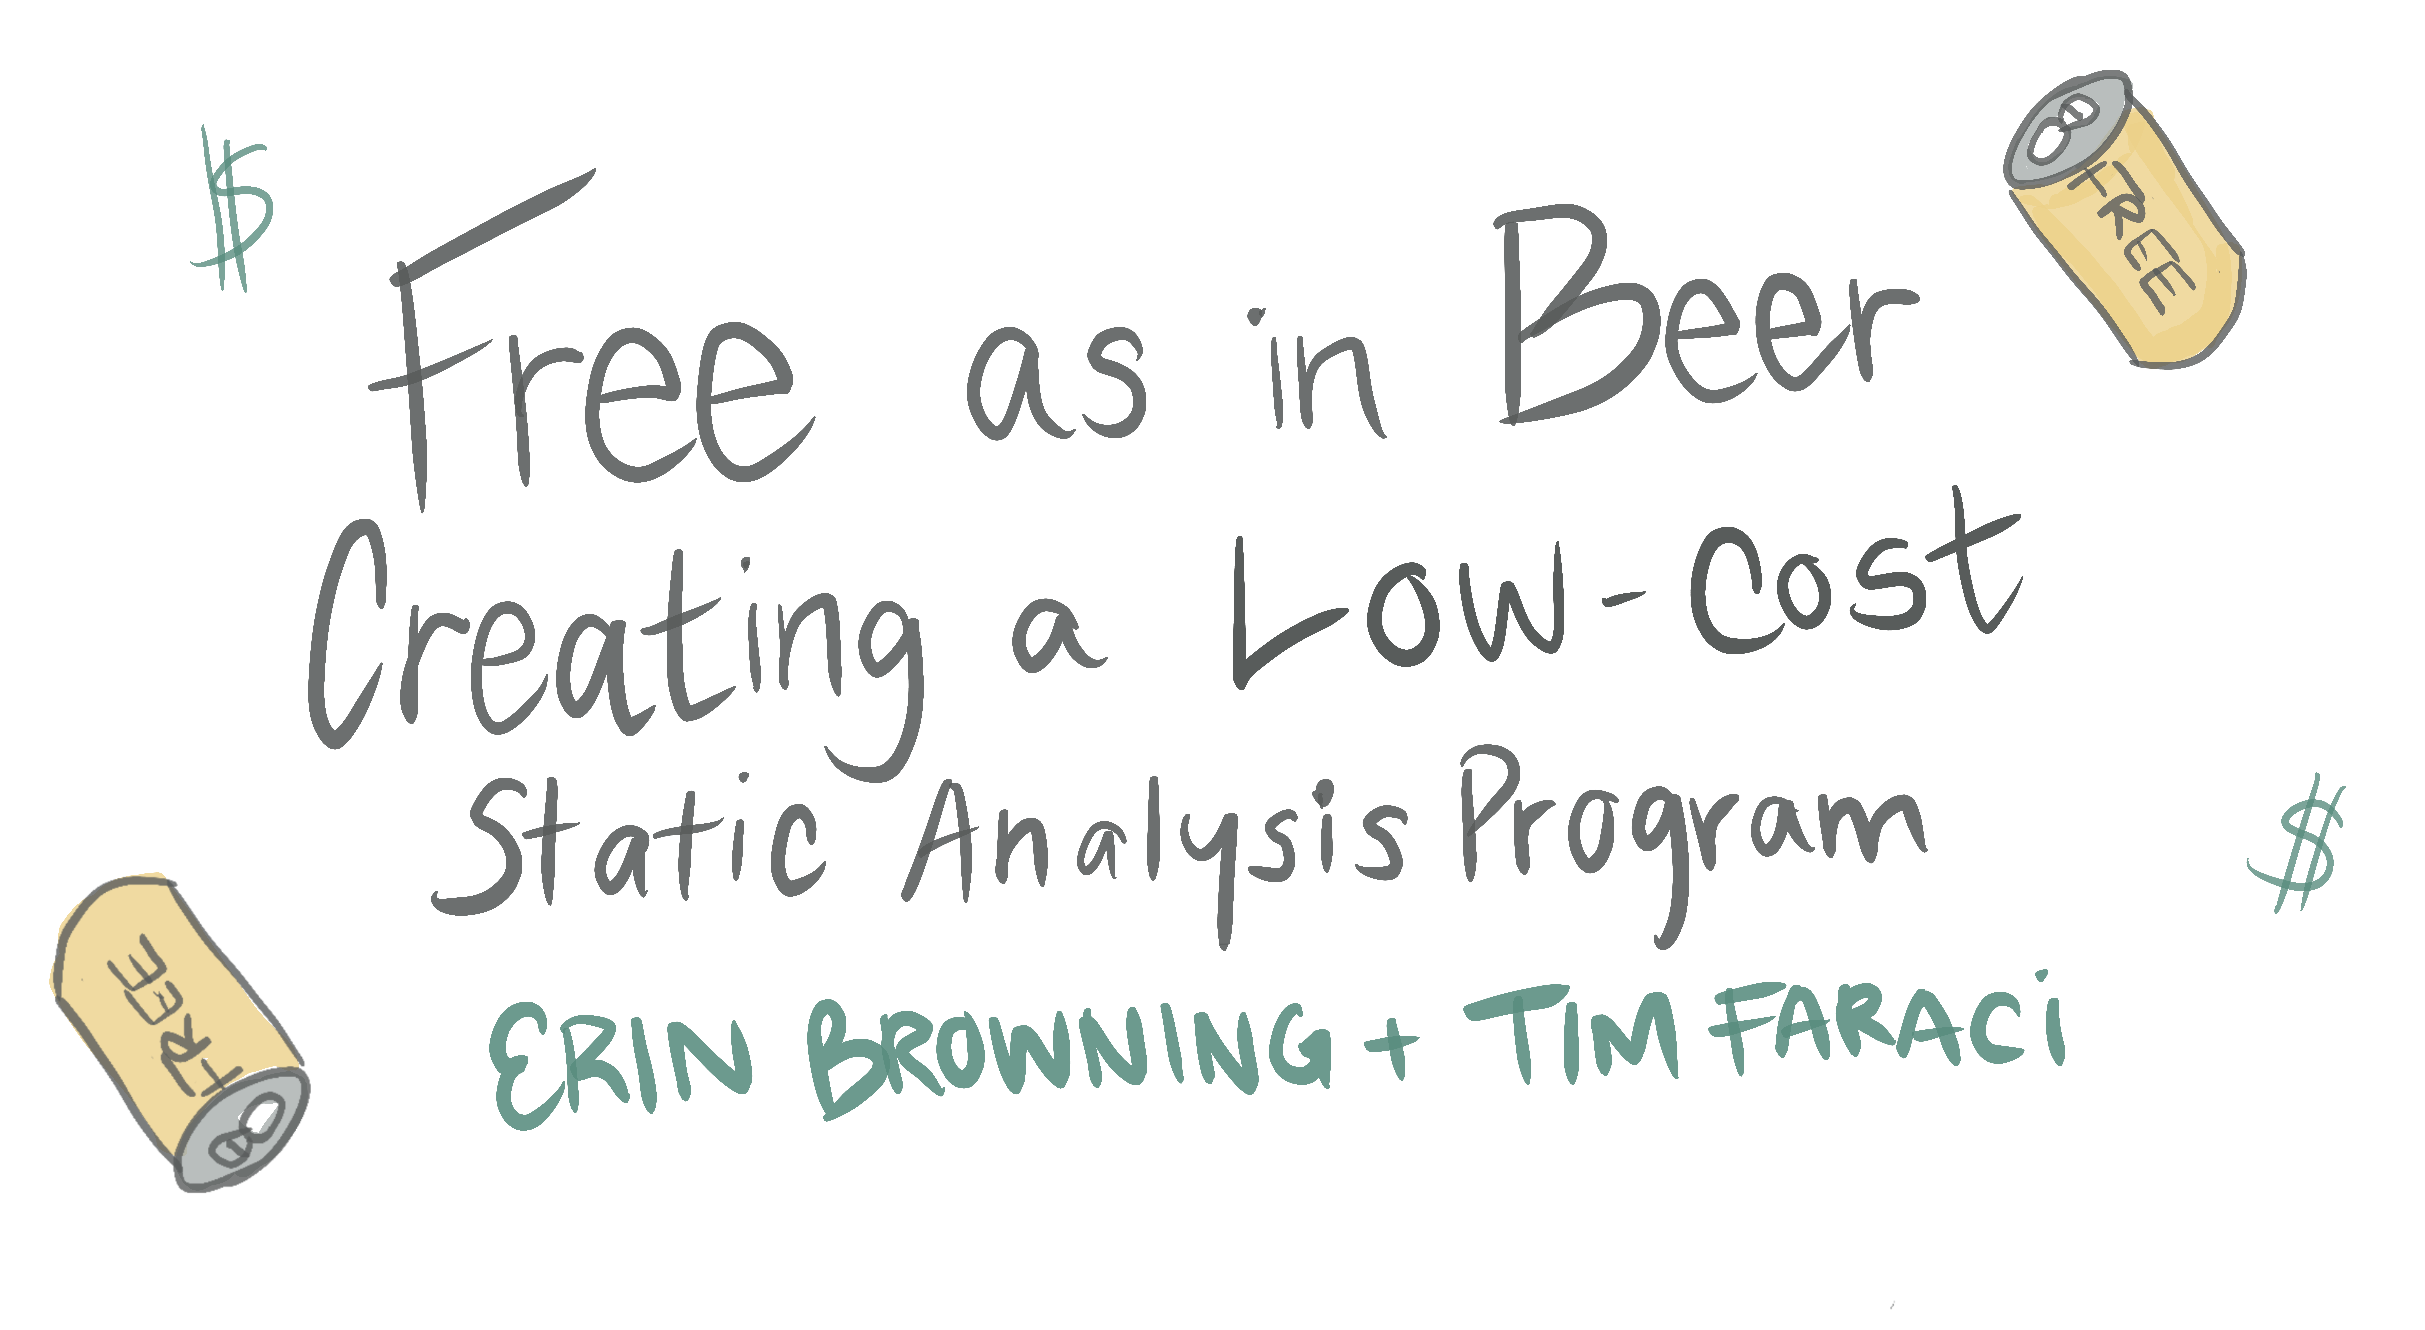 $
FREE
Free as in Beer
Creating a Low-Cost
Static Analysis Program
$
FREE
ERIN BROWNING + TIM FARACi